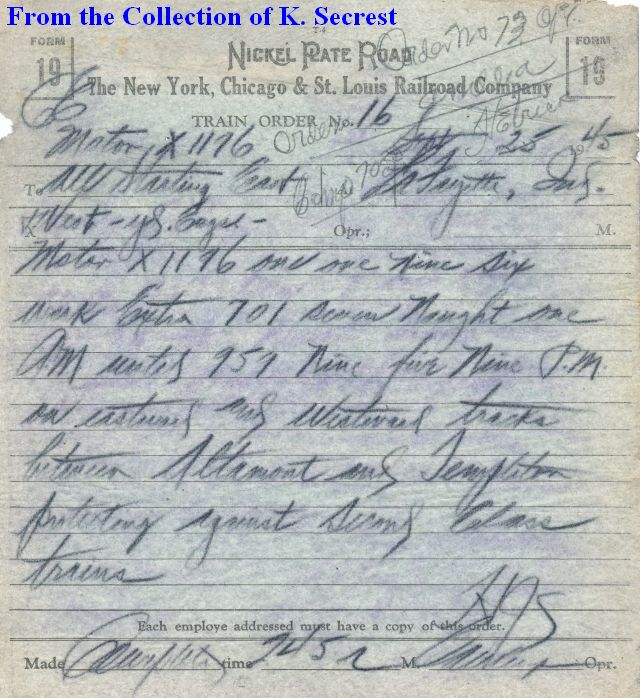 From the Collection of K. Secrest
FORM 19
NICKEL PLATE ROAD
FORM 19
The New York, Chicago & St. Louis Railroad Company
Order No 73
TRAIN ORDER No. 16
Order No
Motor X 1196 Sept 25 1945
To All Starting East Lafayette, Ind.
X West - yd. Engs - Opr.; M.
Motor X 1196 one one nine six
work Extra 701 seven nought one
AM until 959 nine five nine P.M.
on eastward and westward tracks
between Altamont and Templeton
protecting against Second Class
trains
Each employe addressed must have a copy of this order.
Made Complete time 245 M. Opr.